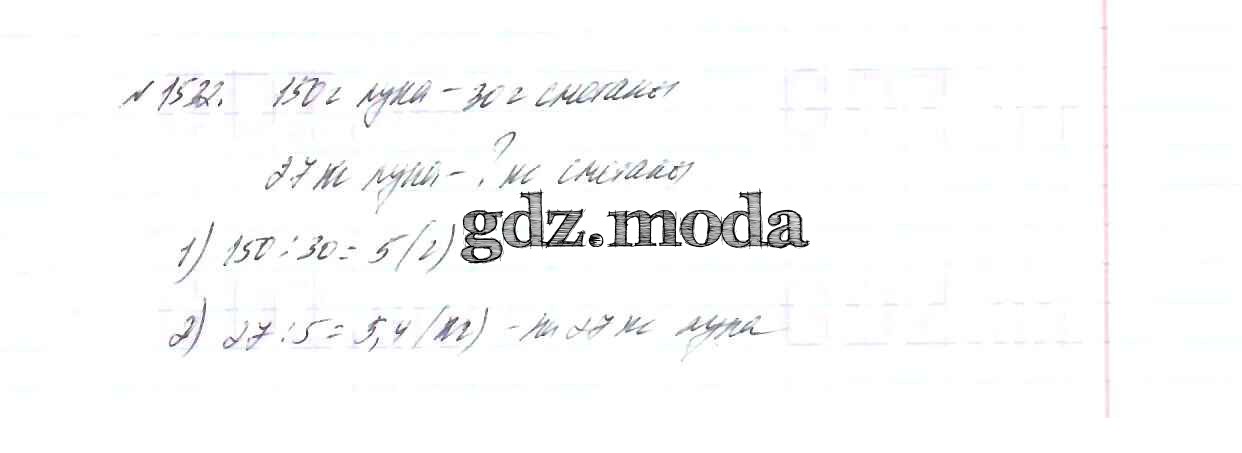 №1522. 150г лука - 30г сметаны
27 кг лука - ? кг сметаны
1) 150:30= 5(г) gdz.moda
2) 27:5= 5,4 (кг) - на 27 кг лука